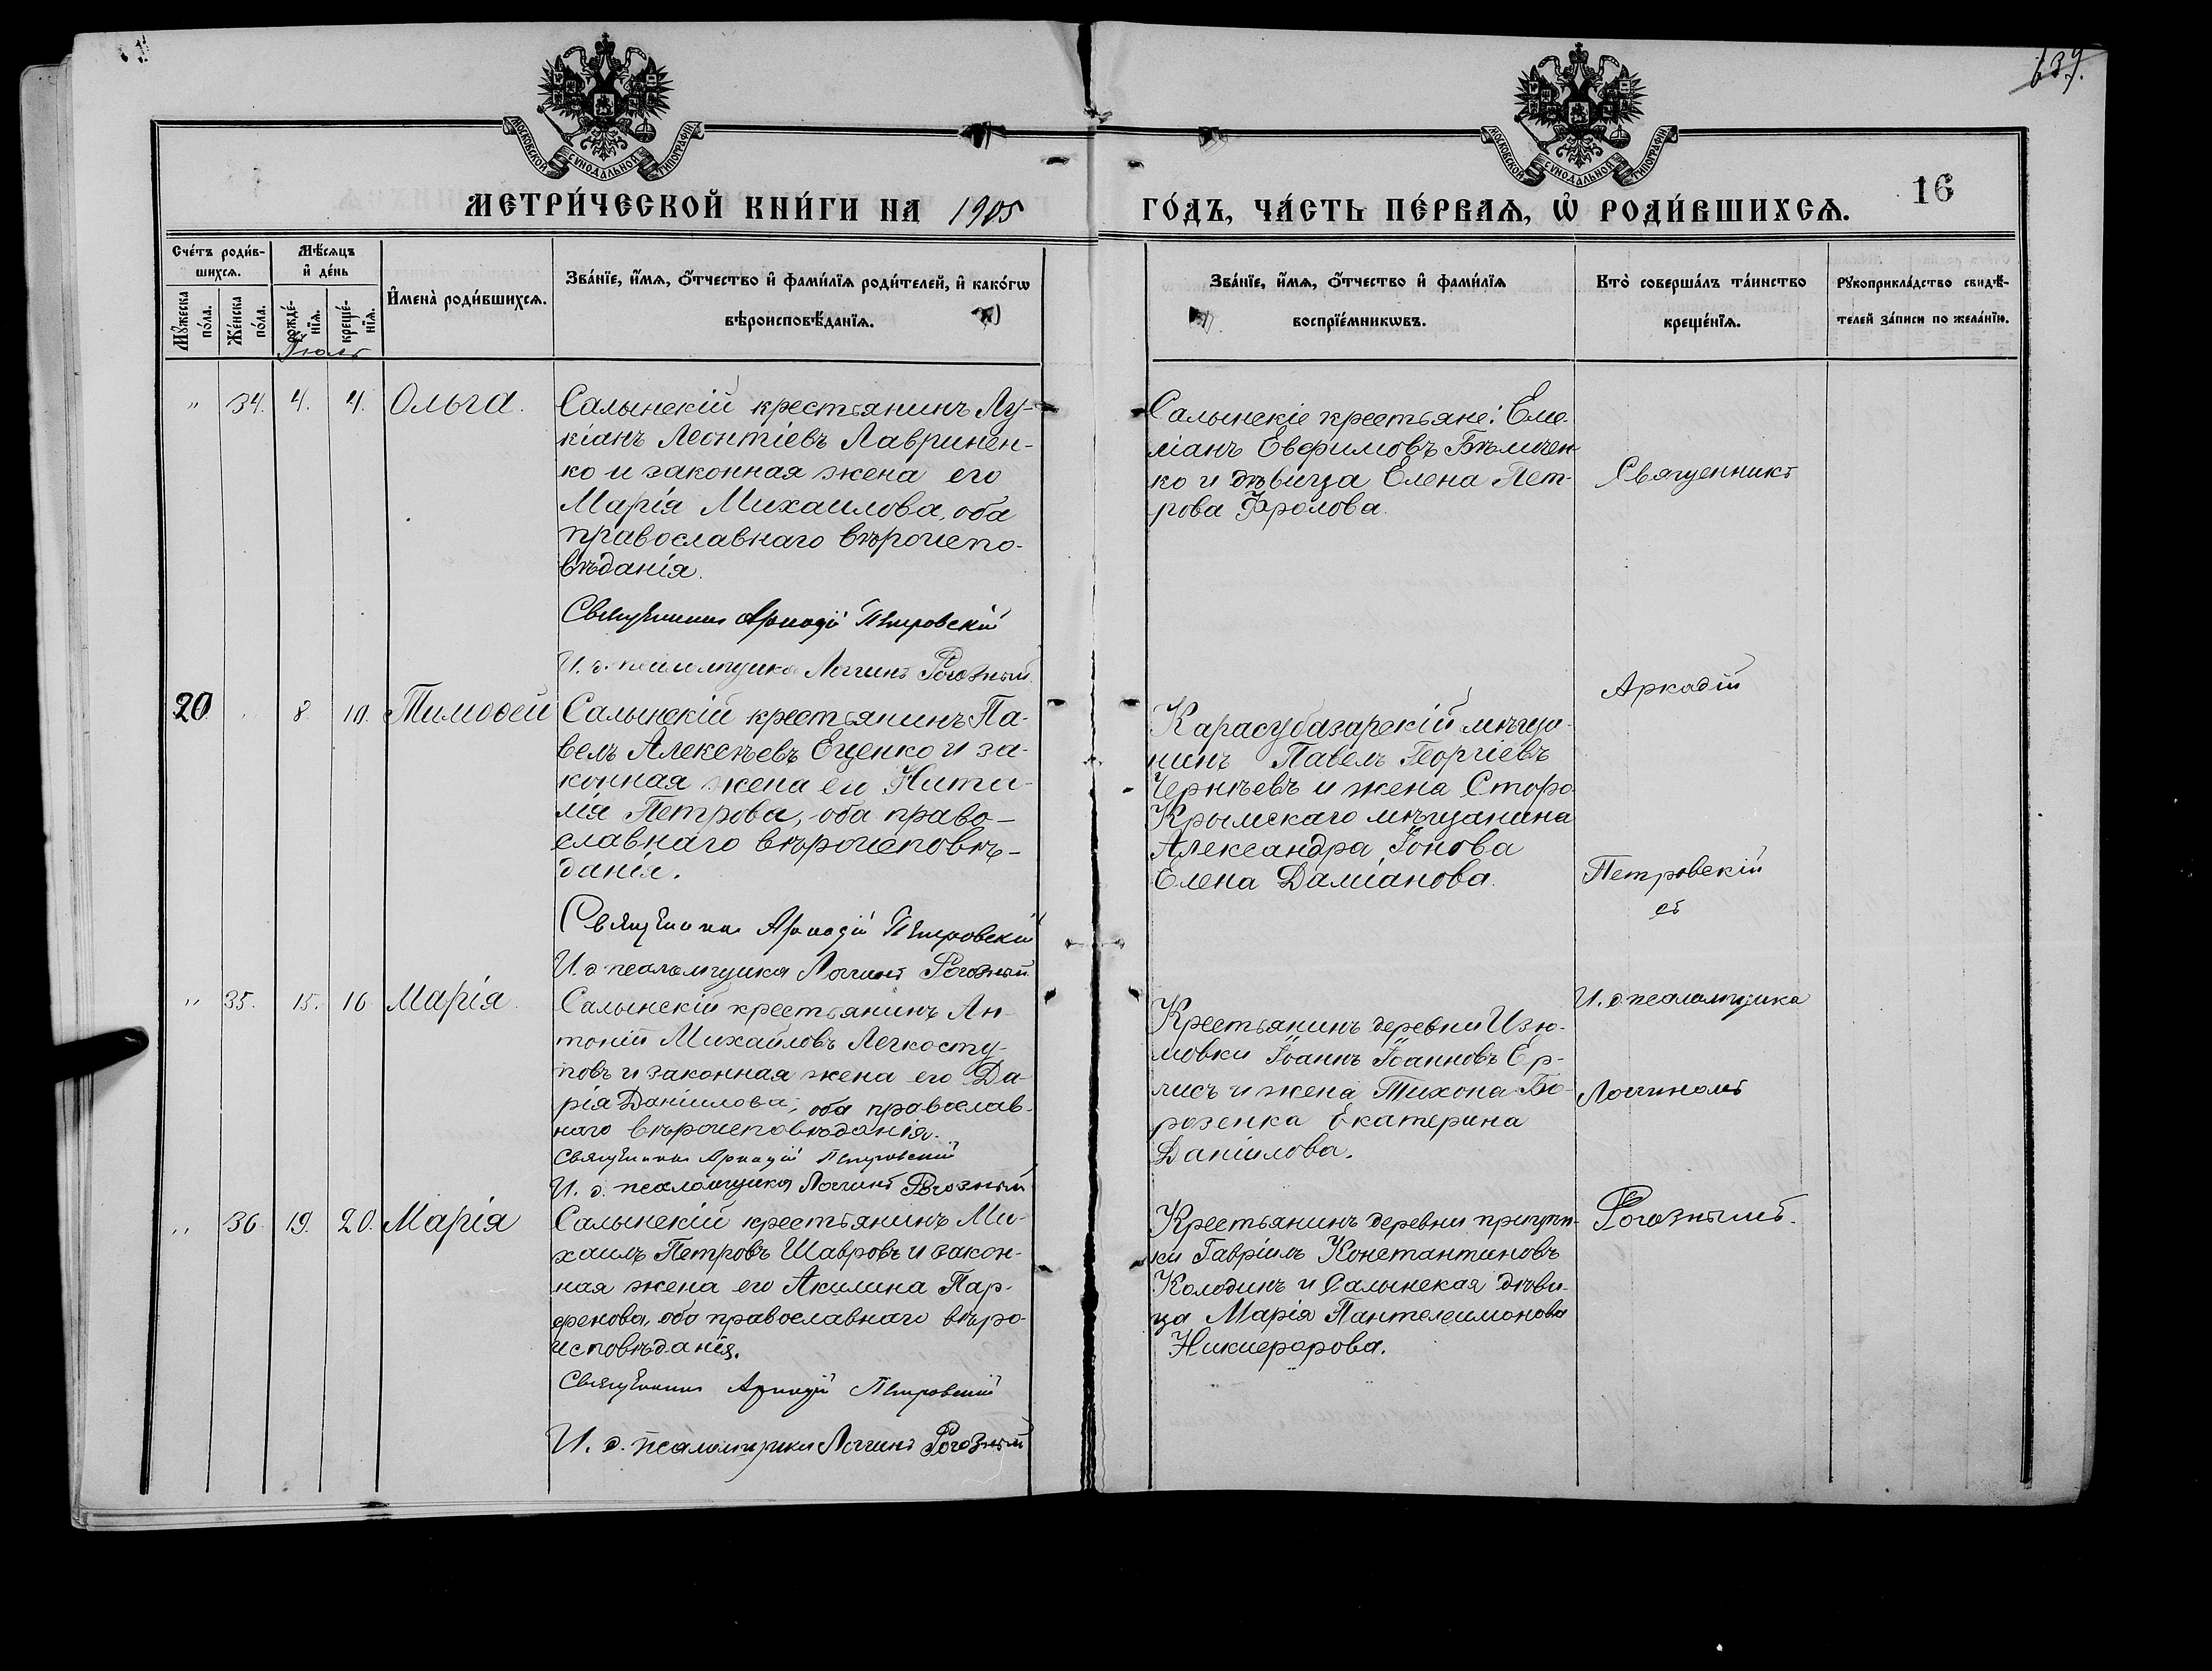 637.
МОСКОВСКОЙ СУНОДАЛЬНОЙ ТИПОГРАФІИ
МОСКОВСКОЙ СУНОДАЛЬНОЙ ТИПОГРАФІИ
МЕТРИ́ЧЕСКОЙ КНИ́ГИ НА 1905
ГО́ДЪ, ЧА́СТЬ ПЕ́РВАѦ, Ѡ҆ РОДИ́ВШИХСѦ.
16
Сче́тъ роди́в-
шихсѧ.
Мѣ́сѧцъ
и҆ де́нь
Мꙋ́жеска
по́ла.
Же́нска
по́ла.
рожде́-
нїѧ.
креще́-
нїѧ.
Іюль
И҆мена̀ роди́вшихсѧ.
Зва́нїе, и҆́мѧ, ѻ҆́тчество и҆ фами́лїѧ роди́телей, и҆ како́гѡ
вѣроисповѣ́данїѧ.
Зва́нїе, и҆́мѧ, ѻ҆́тчество и҆ фами́лїѧ
воспрїе́мникѡвъ.
Кто̀ соверша́лъ та́инство
креще́нїѧ.
Рꙋкоприкла́дство свидѣ́-
телей за́писи по жела́нїю.
" 34. 4. 4. Ольга.
Салынскій крестьянинъ Лу-
кіанъ Леонтіевъ Лавринен-
ко и законная жена его
Марія Михаилова, оба
православнаго вѣроиспо-
вѣданія.
Священникъ Аркадій Петровскій
И. д. псаломщика Логгинъ Рогозный
Салынскіе крестьяне: Еме-
ліанъ Евфимовъ Бѣльчен
ко и дѣвица Елена Пет-
рова Фролова.
Священникъ
Аркадій
Петровскій
съ
И. д. псаломщика
Логгиномъ
Рогознымъ.
20 8. 10. Тимоѳей
Салынскій крестьянинъ Па-
велъ Алексѣевъ Еценко и за-
конная жена его Ната-
лія Петрова, оба право-
славнаго вѣроисповѣ-
данія.
Священникъ Аркадій Петровскій
И. д. псаломщика Логгинъ Рогозный
Карасубазарскій мѣща-
нинъ Павелъ Георгіевъ
Чернѣевъ и жена Старо-
Крымскаго мѣщанина
Александра Іонова
Елена Даміанова.
" 35. 15. 16 Марія.
Салынскій крестьянинъ Ан-
тоній Михайловъ Легкосту-
повъ и законная жена его Да-
рія Даніилова, оба православ-
наго вѣроисповѣданія.
Священникъ Аркадій Петровскій
И. д. псаломщика Логгинъ Рогозный
Крестьянинъ деревни Изю-
мовки Іоаннъ Іоанновъ Ер-
лисъ и жена Тихона Бо-
розенка Екатерина
Даніилова.
" 36. 19. 20. Марія
Салынскій крестьянинъ Ми-
хаилъ Петровъ Шавровъ и закон-
ная жена его Акилина Пар-
фенова, оба православнаго вѣро-
исповѣданія.
Священникъ Аркадій Петровскій
И. д. псаломщика Логгинъ Рогозный
Крестьянинъ деревни
ки Гавріилъ Константиновъ
Колодинъ и Салынская дѣви-
ца Марія Пантелеимонова
Никифорова.